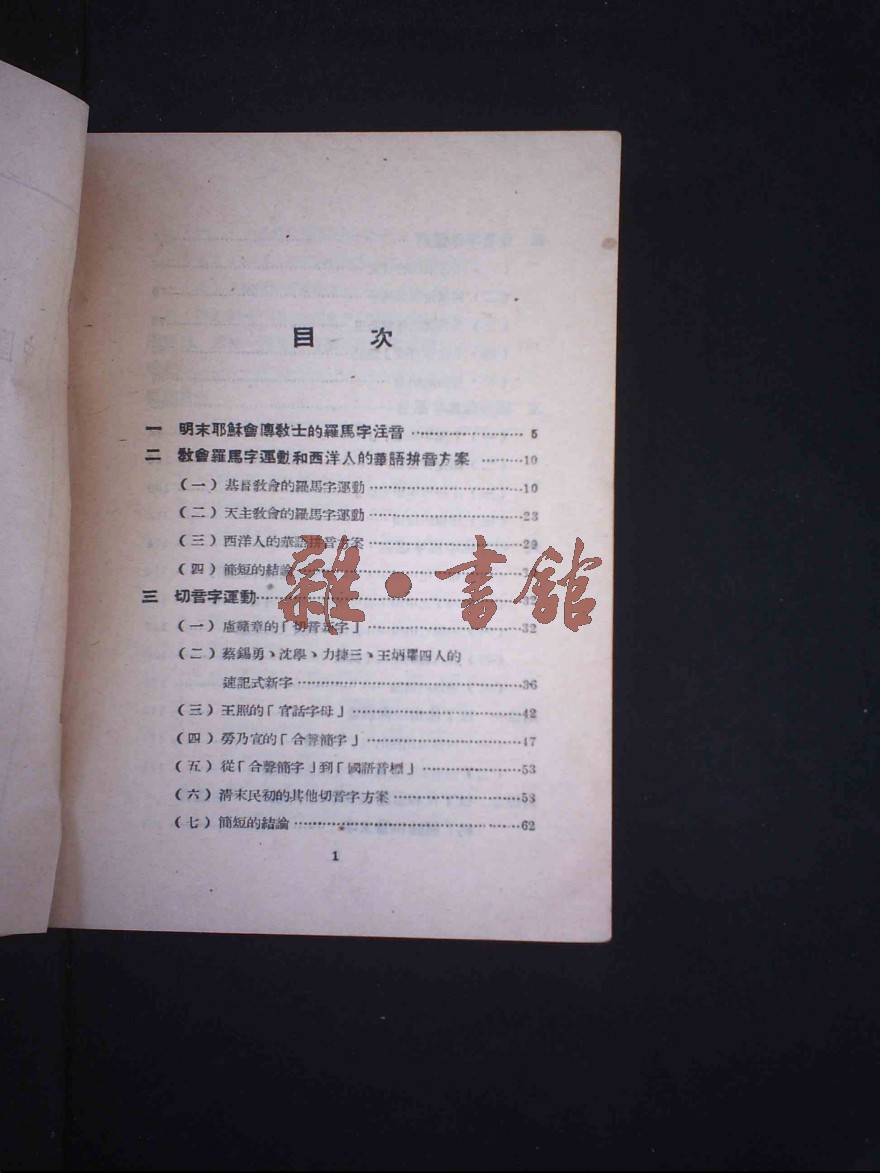 目 次
一 明末耶穌會傳教士的羅馬字注音 …………………… 5
二 教會羅馬字運動和西洋人的華語拼音方案 ………10
（一）基督教會的羅馬字運動 ……………………………10
（二）天主教會的羅馬字運動 ……………………………23
（三）西洋人的華語拼音方案 ……………………………29
（四）簡短的結論
三 切音字運動……………………………………………32
（一）盧戇章的「切音新字」……………………………32
（二）蔡錫勇、沈學、力捷三、王炳耀四人的
速記式新字 ……………………………………36
（三）王照的「官話字母」………………………………42
（四）勞乃宣的「合聲簡字」……………………………47
（五）從「合聲簡字」到「國語音標」 …………………53
（六）清末民初的其他切音字方案 ………………………58
（七）簡短的結論 …………………………………………62
1
雜·書館